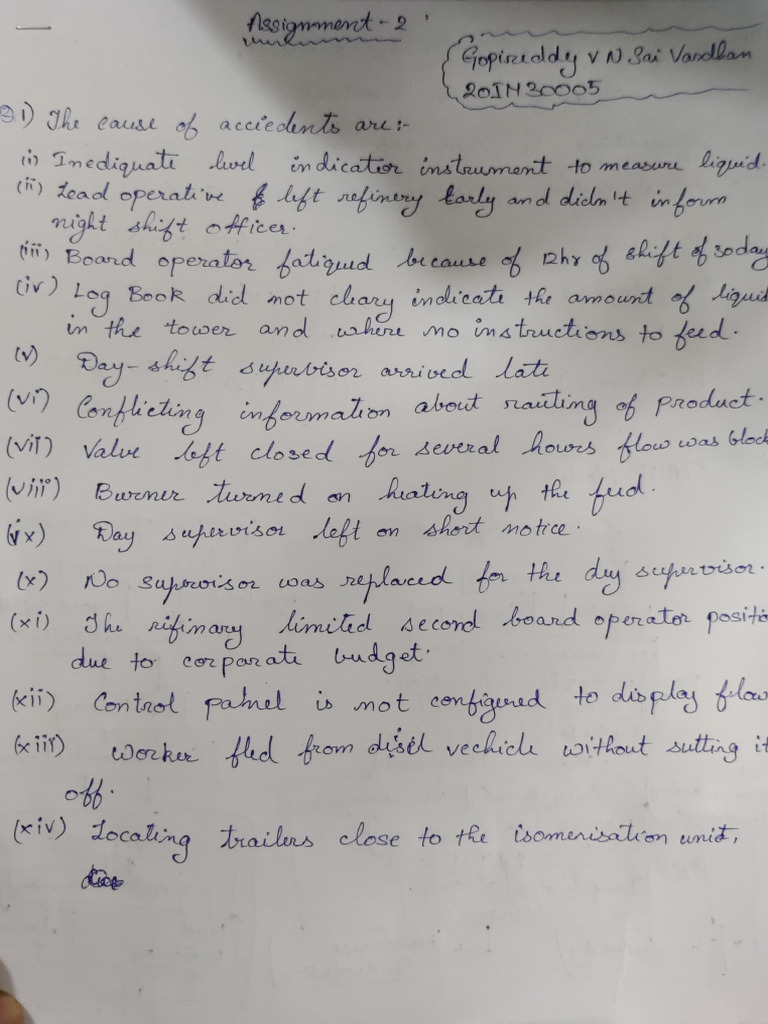 Assignment - 2
Gopireddy V N Sai Vardhan
20IM30005
Q1) The cause of acciedents are :-
(i) Inediquate level indicatior instrument to measure liquid.
(ii) Lead operative left refinery Early and didn't inform
night shift officer.
(iii) Board operator fatigued because of 12hr of shift of 30day
(iv) Log Book did not cleary indicate the amount of liquid
in the tower and where no instructions to feed.
(v) Day-shift supervisor arrived late
(vi) Conflicting information about rauting of product.
(vii) Valve left closed for several hours flow was block
(viii) Burner turned on heating up the feed.
(ix) Day supervisor left on short notice.
(x) No supervisor was replaced for the dey supervisor.
(xi) The rifinary limited second board operator positio
due to corporate budget.
(xii) Control patnel is not configered to display flow
(xiii) Worker fled from disel vechicle without sutting it
off.
(xiv) Locating trailers close to the isomerisation unit,